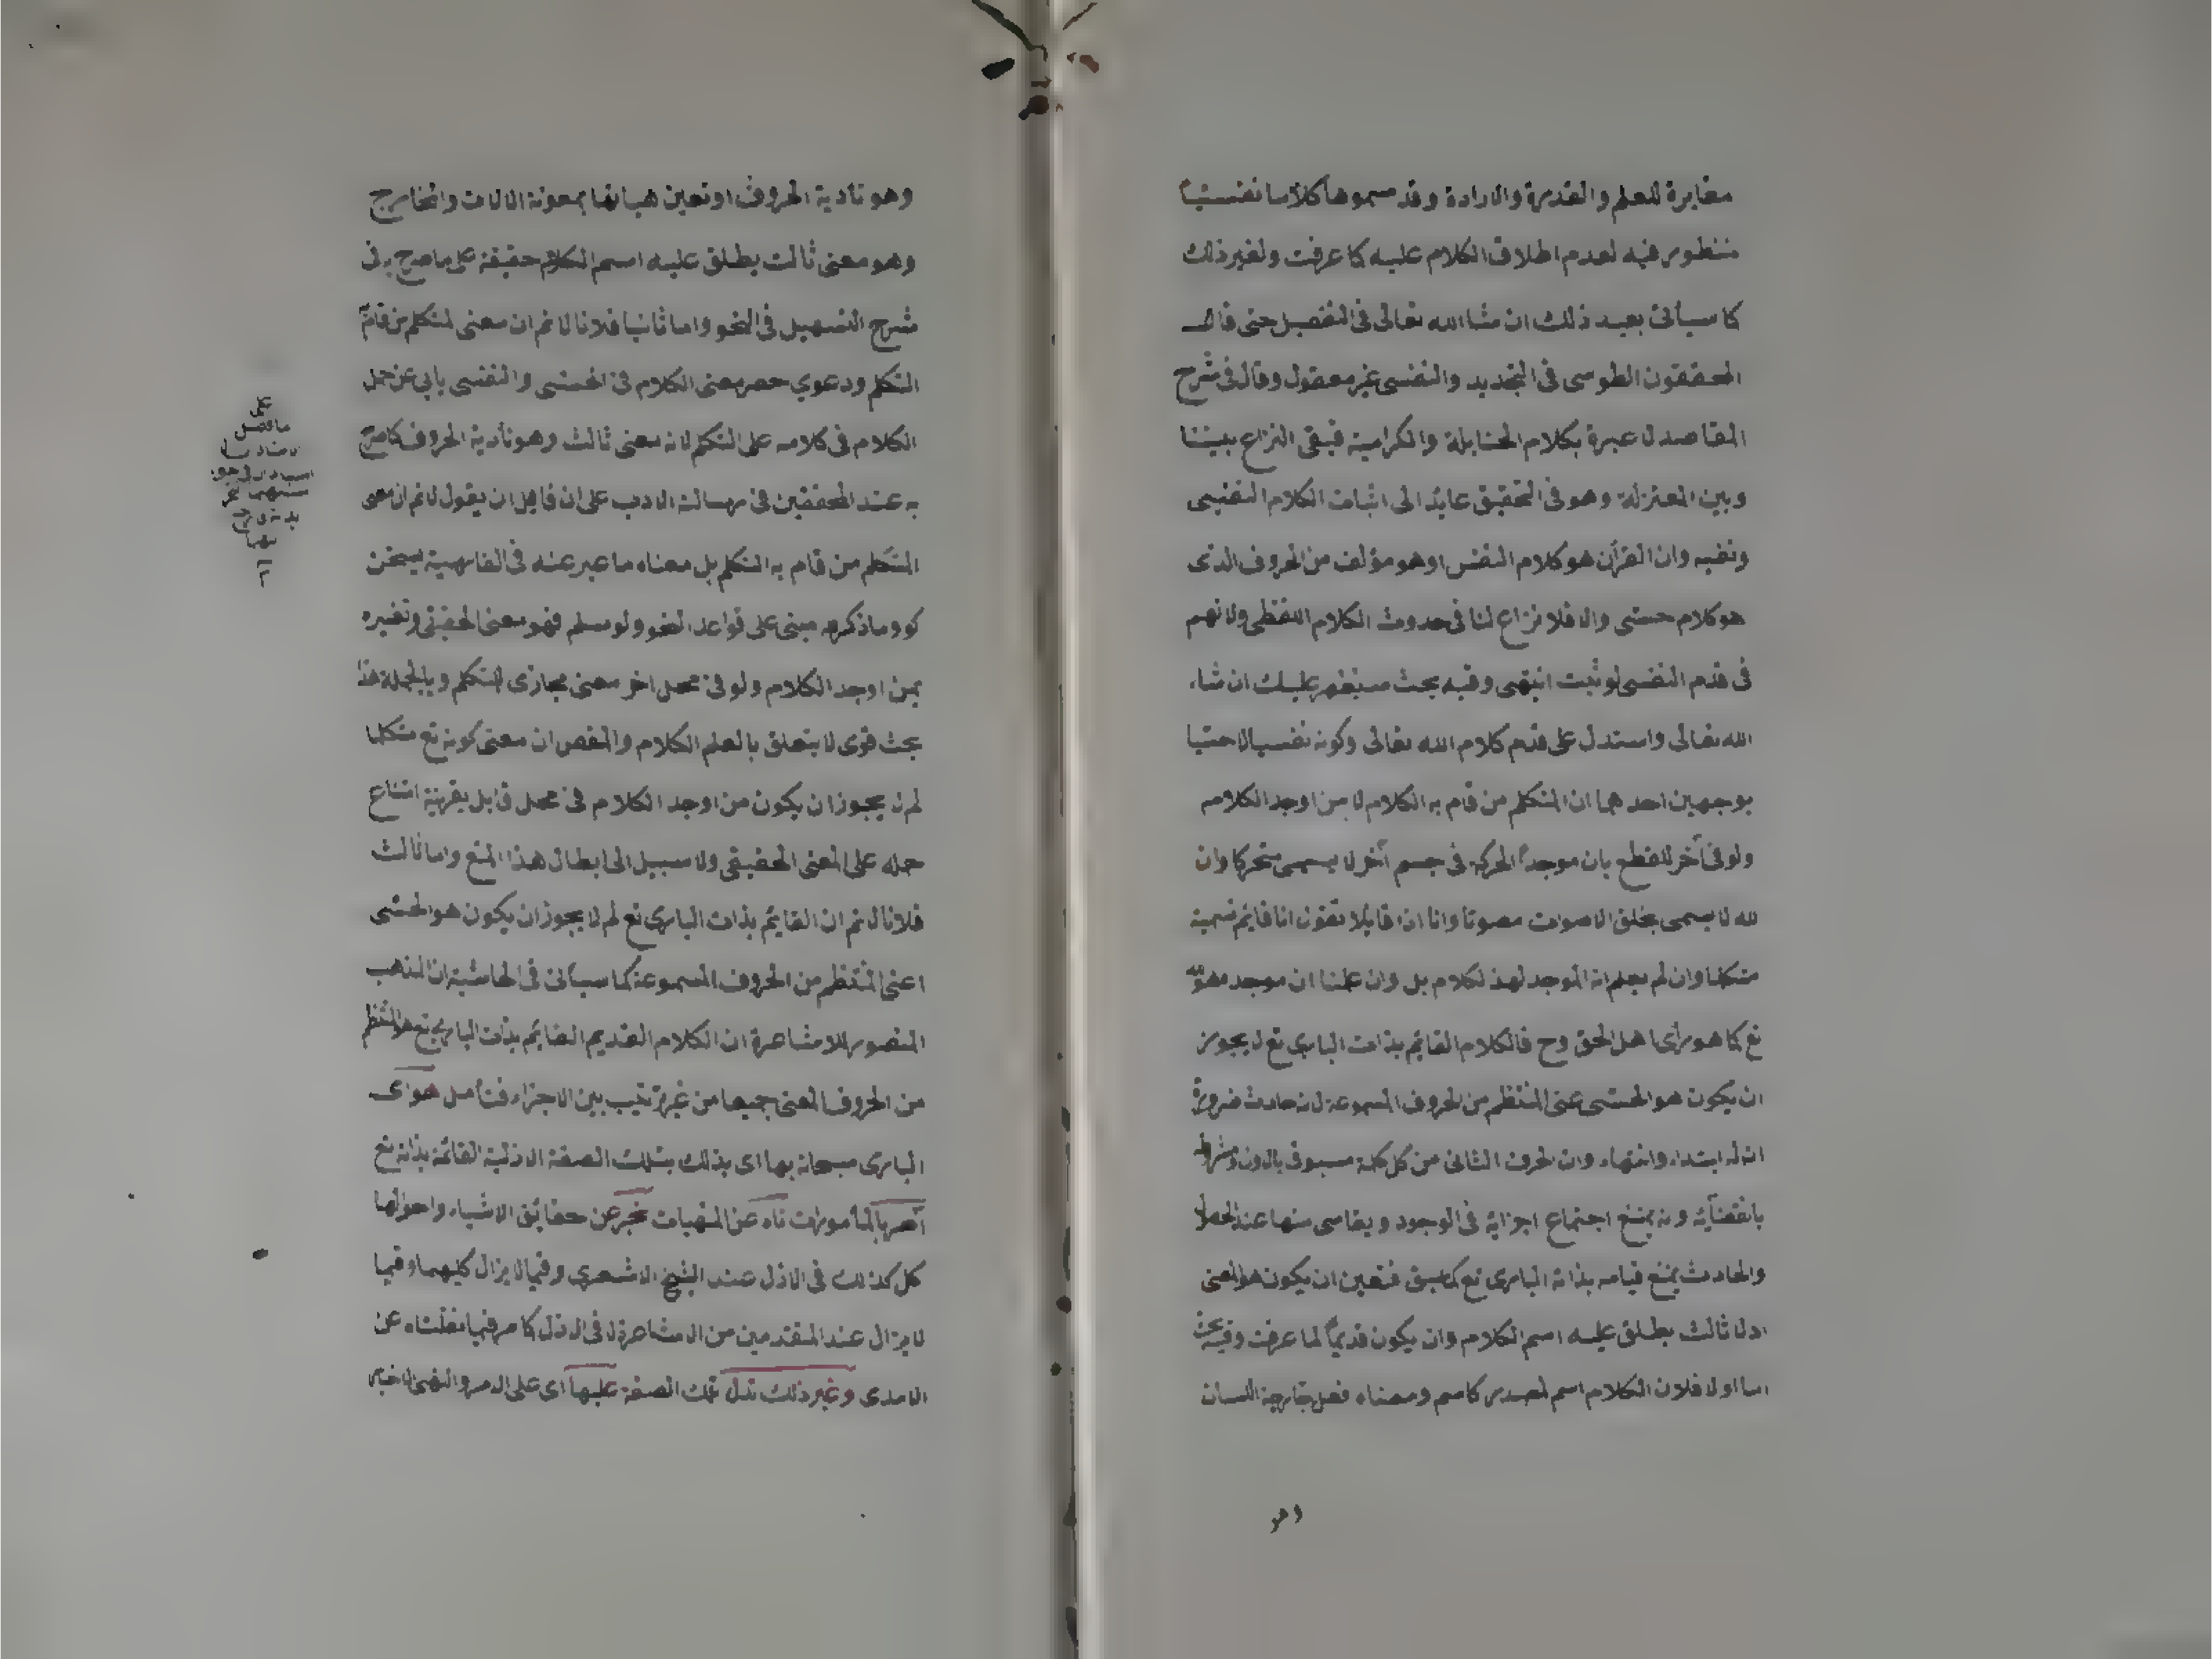 مغايرة للعلم والقدرة والارادة وقد سموها كلاما نفسيا
منظور فيه لعدم اطلاق الكلام عليه كما عرفت ولغير ذلك
كما سيأتي بعيد ذلك ان شا الله تعالى في التفصيل حتى قال
المحققون الطوسى فى التجديد والنفسى غير معقول وقال فى شرح
المقاصد لا عبرة بكلام الحنابلة والكرامية فبقى النزاع بيننا
وبين المعتزلة وهو فى التحقيق عايد الى اثبات الكلام النفيسى
ونفيه وان القرآن هو كلام النفس او هو مؤلف من الحروف الذى
هو كلام حسى والا فلا نزاع لنا فى حدوث الكلام اللفظى ولا نهم
فى قدم النفسى لو ثبت انتهى وفيه بحث سيظهر عليك ان شاء
الله تعالى واستدل على قدم كلام الله تعالى وكونه نفسيا لا حسيا
بوجهين احدهما ان المتكلم من قام به الكلام لا من اوجد الكلام
ولو فى آخر للقطع بان موجد الحركة فى جسم آخر لا يسمى متحركا وان
لله لا يسمى بخلق الاصوات مصوتا وانا اذا قايلا تقول انا قايم نسميه
متكلما وان لم يعلم انه الموجد لهذ لكلام بل وان علمنا ان موجده هو الله
تع كما هو راى اهل الحق وح فالكلام القايم بذات البارى تع لا يجوز
ان يكون هو الحسى عنى المنتظم من الحروف المسموعة لانه حادث ضرورة
ان له ابتداء وانتهاء وان الحرف الثانى من كل كلمة مسبوق بالاول ومشروط
بانقضآيه وانه يمتنع اجتماع اجزايه فى الوجود و منها عند الحصول
والحادث يمتنع قيامه بذاته البارى تع كما سبق فتعين ان يكون هو المعنى
اذ لا ثالث يطلق عليه اسم الكلام وان يكون قديما لما عرفت وفيه بحث
اما اولا فلان الكلام اسم لمصدر كاسم ومعناه فعل جارحة اللسان
وهو تأدية الحروف او تعين هيا تها بمعونة الالات والمخارج
وهو معنى ثالث يطلق عليه اسم الكلام حقيقة على ما صرح به فى
شرح التسهيل فى النحو واما ثانيا فلانا لا نم ان معنى المتكلم من قام
التكلم ودعوي حصر معنى الكلام فى الحسى والنفسى يابى عن حمل
الكلام فى كلامه على التكلم لانه معنى ثالث وهو تأدية الحروف كما صرح
به عند المحققين فى رسالة الادب على ان قايل ان يقول لا نم ان معى
المتكلم من قام به التكلم بل معناه ما عبر عنه فى الفارسية بسخن
كو وما ذكره مبنى على قواعد النحو ولو سلم فهو معنى الحقيقى وتفسيره
بمن اوجد الكلام ولو فى محل اخر معنى مجازى للتكلم وبالجملة هذا
بحث قوى لا يتعلق بالعلم الكلام والمقص ان معنى كونه تع متكلما
لم لا يجوز ان يكون من اوجد الكلام فى محل قابل بقرينة امتناع
حمله على المعنى الحقيقى ولا سبيل الى ابطال هذا المنع واما ثالث
فلانا لا نم ان القايم بذات البارى تع لم لا يجوز ان يكون هو الحسى
اعنى المنتظم من الحروف المسموعة كما سيأتى فى الحاشية ان المذهب
المنصور للاشاعرة ان الكلام القديم القايم بذات البارى تع هو المنتظم
من الحروف المعنى جميعا من غير ترتيب بين الاجزاء فتأمل هو اى
البارى سبحانه بها اى بذلك بتلك الصفة الازلية القائمة بذاته تع
آمر بالمأمورات ناه عن المنهيات مخبر عن حقايق الاشياء واحوالها
كل كذلك فى الازل عند الشيخ الاشعري وفيما لا يزال كليهما وفيما
لا يزال عند المتقدمين من الاشاعرة لا فى الازل كما مر فيما نقلناه عن
الامدى وغير ذلك تدل تلك الصفة عليها اى على الامر والنهى الاخبار